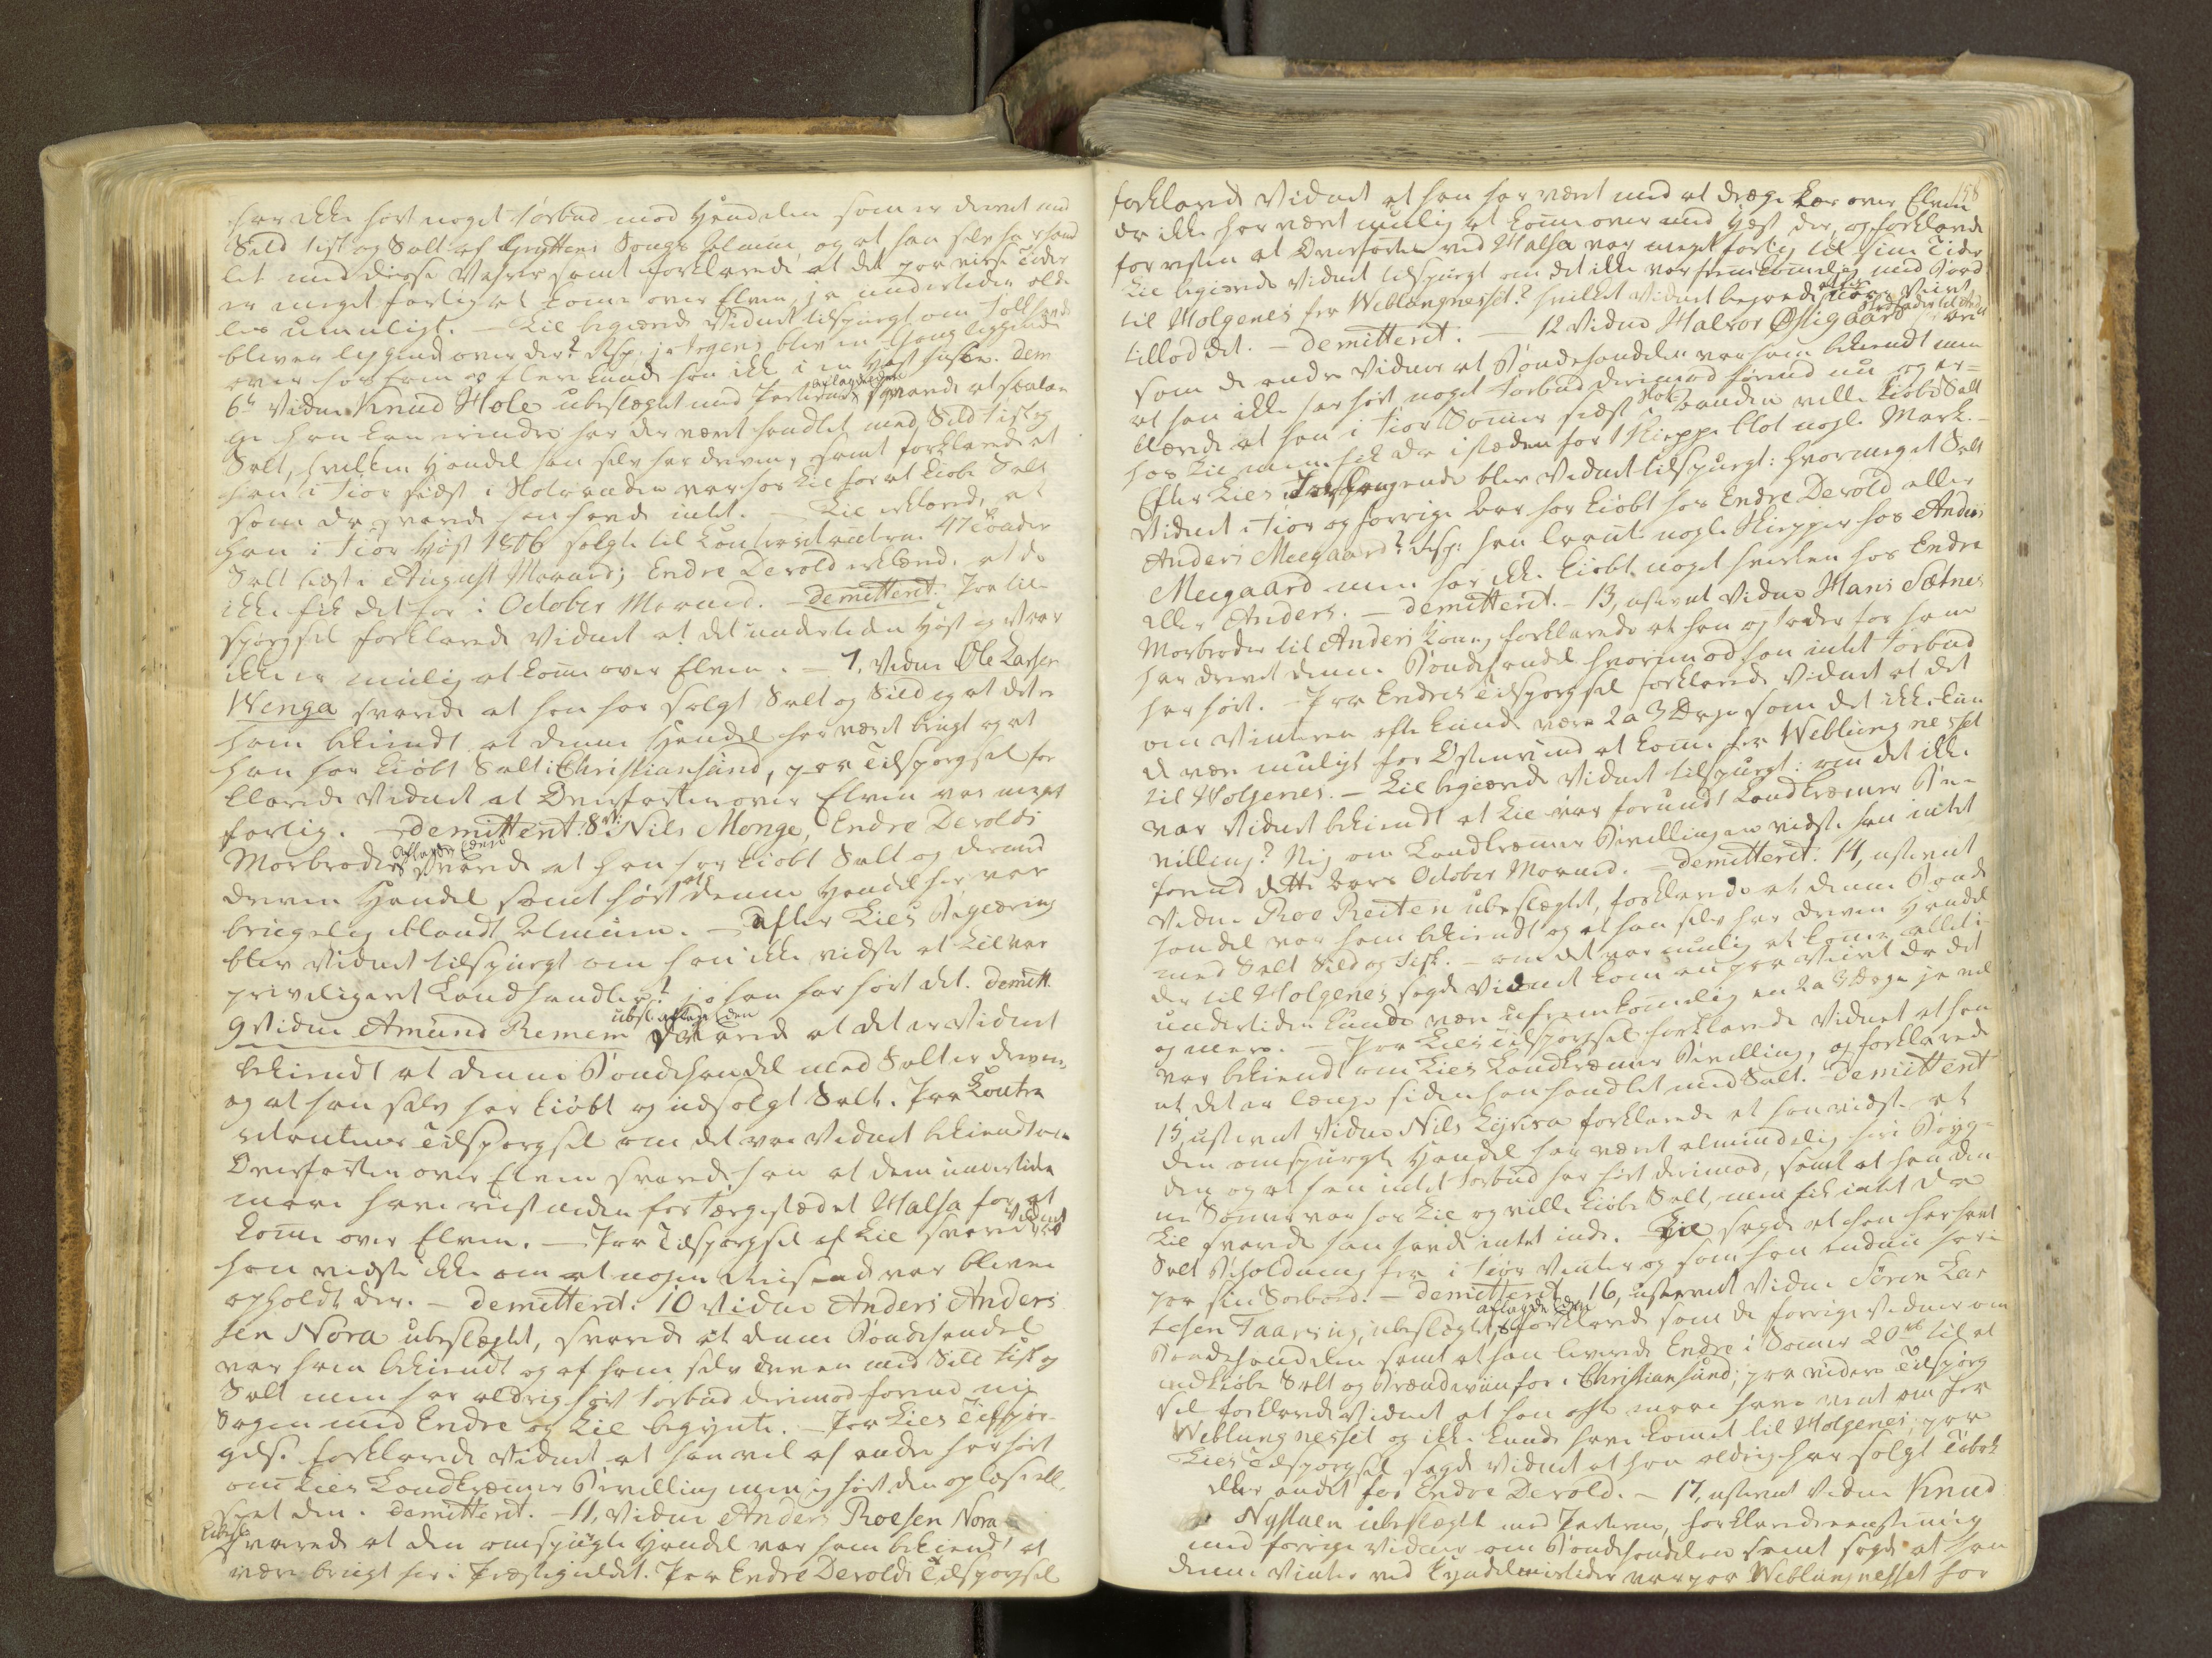 har ikke hørt noget Forbud mod Handelen som er drevet med
Sild Fisk og Salt af Gryttens Sogns Almue, og at han selv har hand
let med disse Vahrer samt forklarede at det paa visse Tider
er meget farligt at komme over Elven, ja undertiden alde
les umuligt. – Lie begierede Vidnet tilspurgt om Folk havde
bleven liggende over der? Resp: ja
over hos ham eller kunde han ikke i en Hast huske. Dem
6te Vidne Knud Hole ubeslægtet med Parterne aflagde Eden svarede at saalæn
ge han kan erindre har der været handlet med Sild Fisk og
Salt, hvilken Handel han selv har dreven, samt forklarede at
han i Fior sidst i Slotaanden var hos Lie for at kiøbe Salt
som da svarede han havde intet. – Lie erklærede at
han i Fior Høst 1806 solgte til Contracitanten 47 Tønder
Salt sidst i August Maaned; Endre Devold erklærede at de
ikke fik det før i October Maaned. – Demitteret. Paa Til
spørgsel forklarede Vidnet at det undertiden Høst og Vaar
ikke er mulig at komme over Elven. – 7, Vidne Ole Larsen
Wenga svarede at han har solgt Salt og Sild og at det er
ham bekiendt at denne Handel har været brugt og at
han har kiøbt Salt i Christiansund, paa Tilspørgsel for
klarede Vidnet at Overfarten over Elven var meget
farlig. – Demitteret. 8de Vi: Nils Monge, Endre Devolds
Morbroder aflagde Eden svarede at han har kiøbt Salt og dermed
dreven Handel samt hørt at denne Handel her var
brugelig iblandt Almuen. – Efter Lies Begiæring
blev Vidnet tilspurgt om han ikke vidste at Lie var
priviligeret Landhandler? jo han har hørt det. Demitt.
9 Vidne Amund Remem ubesl. aflagde Eden svarede at det er Vidnet
bekiendt at denne Bondehandel med Salt er dreven,
og at han selv har kiøbt og udsolgt Salt. Paa Contra
citantens Tilspørgsel om det var Vidnet bekiendt om
Overfarten over Elven svarede han at dem undertiden
maae have reist neden for Færgestædet Halsa for at
komme over Elven. – Paa Tilspørgsel af Lie svarede Vidnet at
han vidste ikke om at nogen Reisende var bleven
opholdt der. – Demitteret. 10 Vidne Anders Anders
sen Nora ubeslægtet, svarede at denne Bondehandel
var ham bekiendt og af ham selv dreven med Sild Fisk og
Salt men har aldrig hørt Forbud derimod førend nu
Sagen med Endre og Lie begynte. – Paa Lies Tilspør
gelse forklarede Vidnet at han vel af andre har hørt
om Lies Landkræmmer Bevilling men ej hørt den oplæse ell
seet den. Demitteret. – 11, Vidne Anders Roesen Nora
ubesl. svarede at den omspurgte Handel var ham bekiendt at
være brugt her i Præstegieldet. Paa Endre Devolds Tilspørgsel
158
forklarede Vidnet at han har været med at drage Kar over Elven
da ikke har været mulig at komme over med Hest der, og forklarede
for resten at Overfarten ved Halsa var meget farlig til sine Tider
Lie begierede Vidnet tilspurgt om det ikke var fremkommelig med Baad
til Holgenes fra Weblungnesset? hvilket Vidnet bejaede naar Veiret
tillod det. – Demitteret. – 12 Vidne Halvor Østigaard
som de andre Vidner at Bondehandelen var ham bekiendt men
at han ikke har hørt noget Forbud derimod førend nu og er=
klærede at han i Fior Sommer sidst i Slotaanden ville kiøbe Salt
hos Lie men fik da istæden for 1 Skieppe blot nogle Mark. –
Efter Lies Forlangende blev Vidnet tilspurgt: hvormeget Salt
Vidnet i Fior og forrige Aar har kiøbt hos Endre Devold eller
Anders Meegaard? Resp: han laant nogle Skiepper hos Anders
Meegaard men har ikke kiøbt noget hverken hos Endre
eller Anders. – Demitteret. – 13, ustevnt Vidne Hans Sætnes
Morbroder til Anders Kone, forklarede at han og Fader før ham
har drevet denne Bondehandel hvorimod han intet Forbud
har hørt. – Paa Endres Tilspørgsel forklarede Vidnet at det
om Vinteren ofte kunde være 2 a 3 Dage som det ikke kun
de være muligt for Østenvind at komme fra Weblungnesset
til Holgenes. – Lie begierede Vidnet tilspurgt: om det ikke
var Vidnet bekiendt at Lie var forundt Landkræmmer Be=
villing? Nej om Landkræmmer Bevillingen vidste han intet
førend dette Aars October Maaned. – Demitteret. 14, ustevnt
Vidne Roe Reiten ubeslægtet, forklarede at denne Bonde
handel var ham bekiendt og at han selv har dreven Handel
med Salt Sild og Fisk. – om det var mulig at komme alleti
der til Holgenes sagde Vidnet kom an paa Veiret da det
undertiden kunde være ufremkommelig en 2 a 3 Dage ja vel
og mere. – Paa Lies Tilspørgsel forklarede Vidnet at han
var bekiendt om Lies Landkræmmer Bevilling, og forklarede
at det er længe siden han handlet med Salt. – Demitteret
15, ustevnt Vidne Nils Kyrisa forklarede at han vidste at
den omspurgte Handel har været almindelig her i Byg=
den og at han intet Forbud har hørt derimod, samt at han den
ne Sommer var hos Lie og ville kiøbe Salt, men fik intet da
Lie svarede han havde intet inde. Lie sagde at han har havt
Salt Beholdning fra i Fior Vinter og som han endnu har
paa sin Søebod. – Demitteret. 16, ustevnt Vidne Søren Lar
sesen Taaring, ubeslægtet, aflagde Eden forklarede som de forrige Vidner om
Bondehandelen samt at han leverede Endre i Sommer 20 rd til at
indkiøbe Salt og Brændeviin for i Christiansund; paa videre Tilspørg
sel forklarede Vidnet at han ofte maae have vent om fra
Weblungnesset og ikke kunde have kommet til Holgenes, paa
Lies Tilspørgsel sagde Vidnet at han aldrig har solgt Tobak
eller andet for Endre Devold. – 17, ustevnt Vidne Knud
Nystuen ubeslægtet med Parterne, forklarede eenstemmig
med forrige Vidner om Bondehandelen samt sagde at han
denne Vinter ved Kyndelmissetider var paa Weblungnesset for